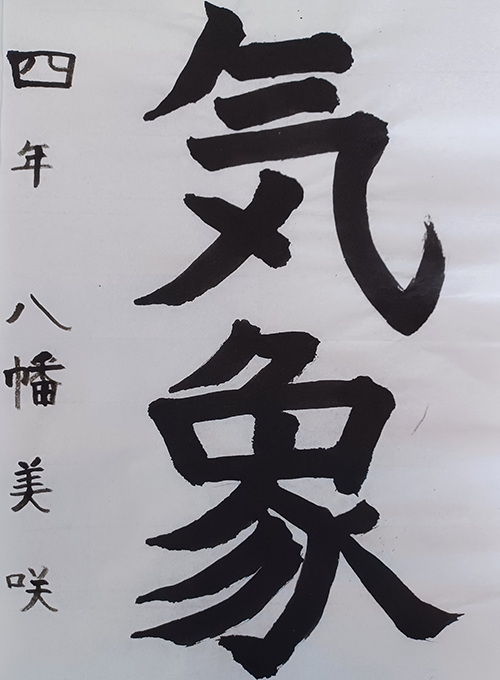 気象
四年 八幡美咲